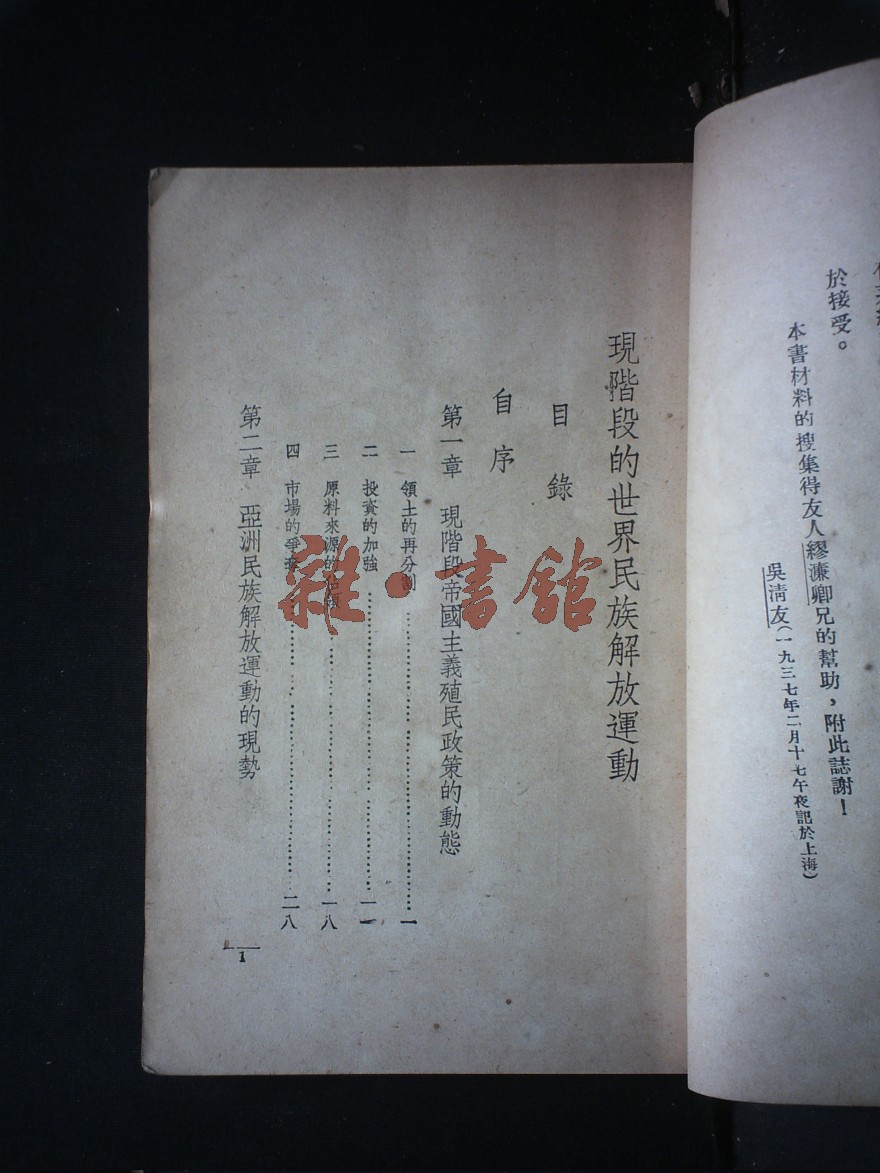 於接受。
本書材料的搜集得友人繆濂卿兄的幫助，附此誌謝！
吳清友（一九三七年二月十七午夜記於上海）
現階段的世界民族解放運動
目錄
自序
第一章 現階段帝國主義殖民政策的動態
一 領土的再分割……一
二 投資的加強……一一
三 原料來源的……一八
四 市場的爭奪……二八
第二章 亞洲民族解放運動的現勢
1
雜·書館